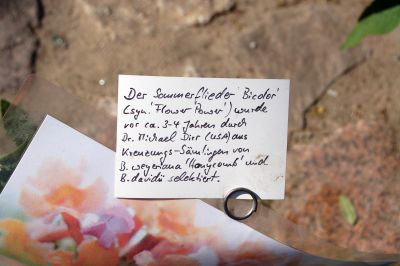 Der Sommerflieder 'Bicolor'
(syn. 'Flower Power') wurde
vor ca. 3-4 Jahren durch
Dr. Michael Dirr (USA) aus
Kreuzungs-Sämlingen von
B. weyeriana 'Honycomb' und
B. davidii selektiert.